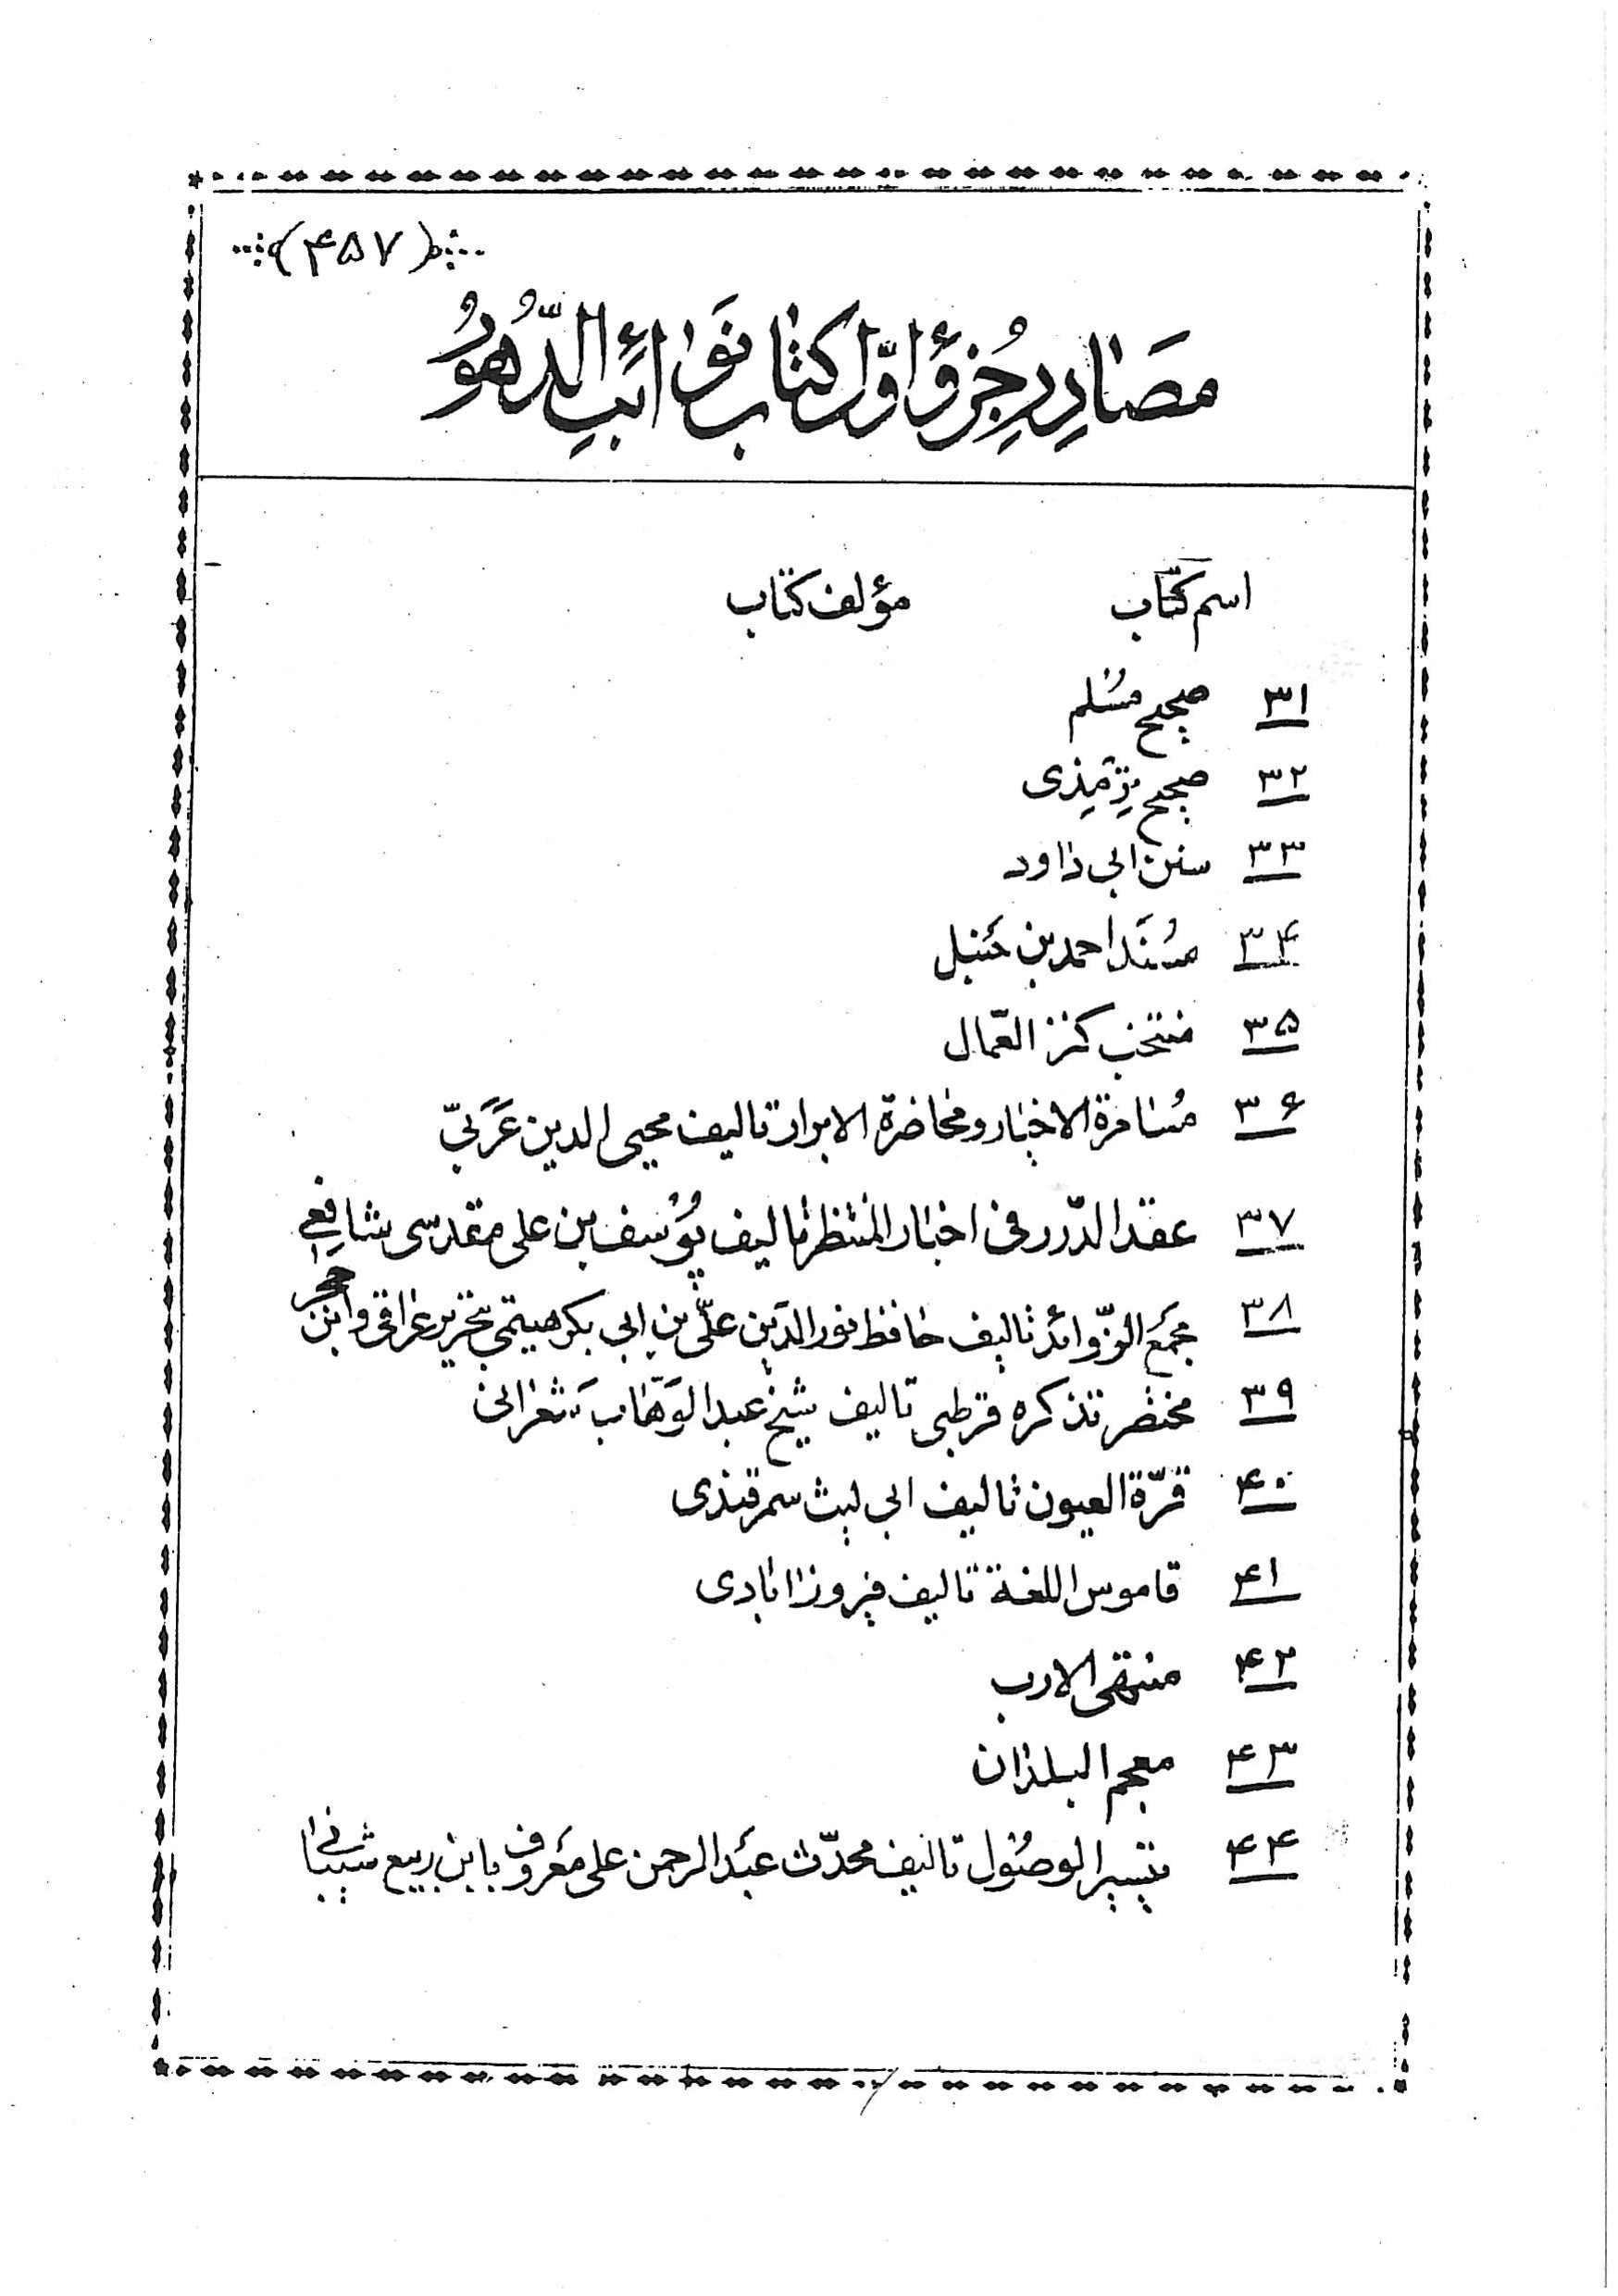 (۴۵۷)
مصادر جزؤ اوّل کتاب نوائب الدّهور
اسم کتاب مؤلف کتاب
۳۱ صحیح مسلم
۳۲ صحیح ترمذی
۳۳ سنن ابی داود
۳۴ مسند احمد بن حنبل
۳۵ منتخب کنز العمّال
۳۶ مسامرة الاخیار و محاضرة الابرار تالیف محیی الدین عربیّ
۳۷ عقد الدّرر فی اخبار المنتظر تالیف یوسف بن علی مقدسی شافعی
۳۸ مجمع الزّوائد تالیف حافظ نور الدین علیّ بن ابی بکر هیتمی بتحریر عراقی و ابن حجر
۳۹ مختصر تذکره قرطبی تالیف شیخ عبد الوهّاب شعرانی
۴۰ قرّة العیون تالیف ابی لیث سمرقندی
۴۱ قاموس اللغة تالیف فیروزابادی
۴۲ منتهی الارب
۴۳ معجم البلدان
۴۴ تیسیر الوصول تالیف محدّث عبد الرحمن علی معروف بابن ربیع شیبانی